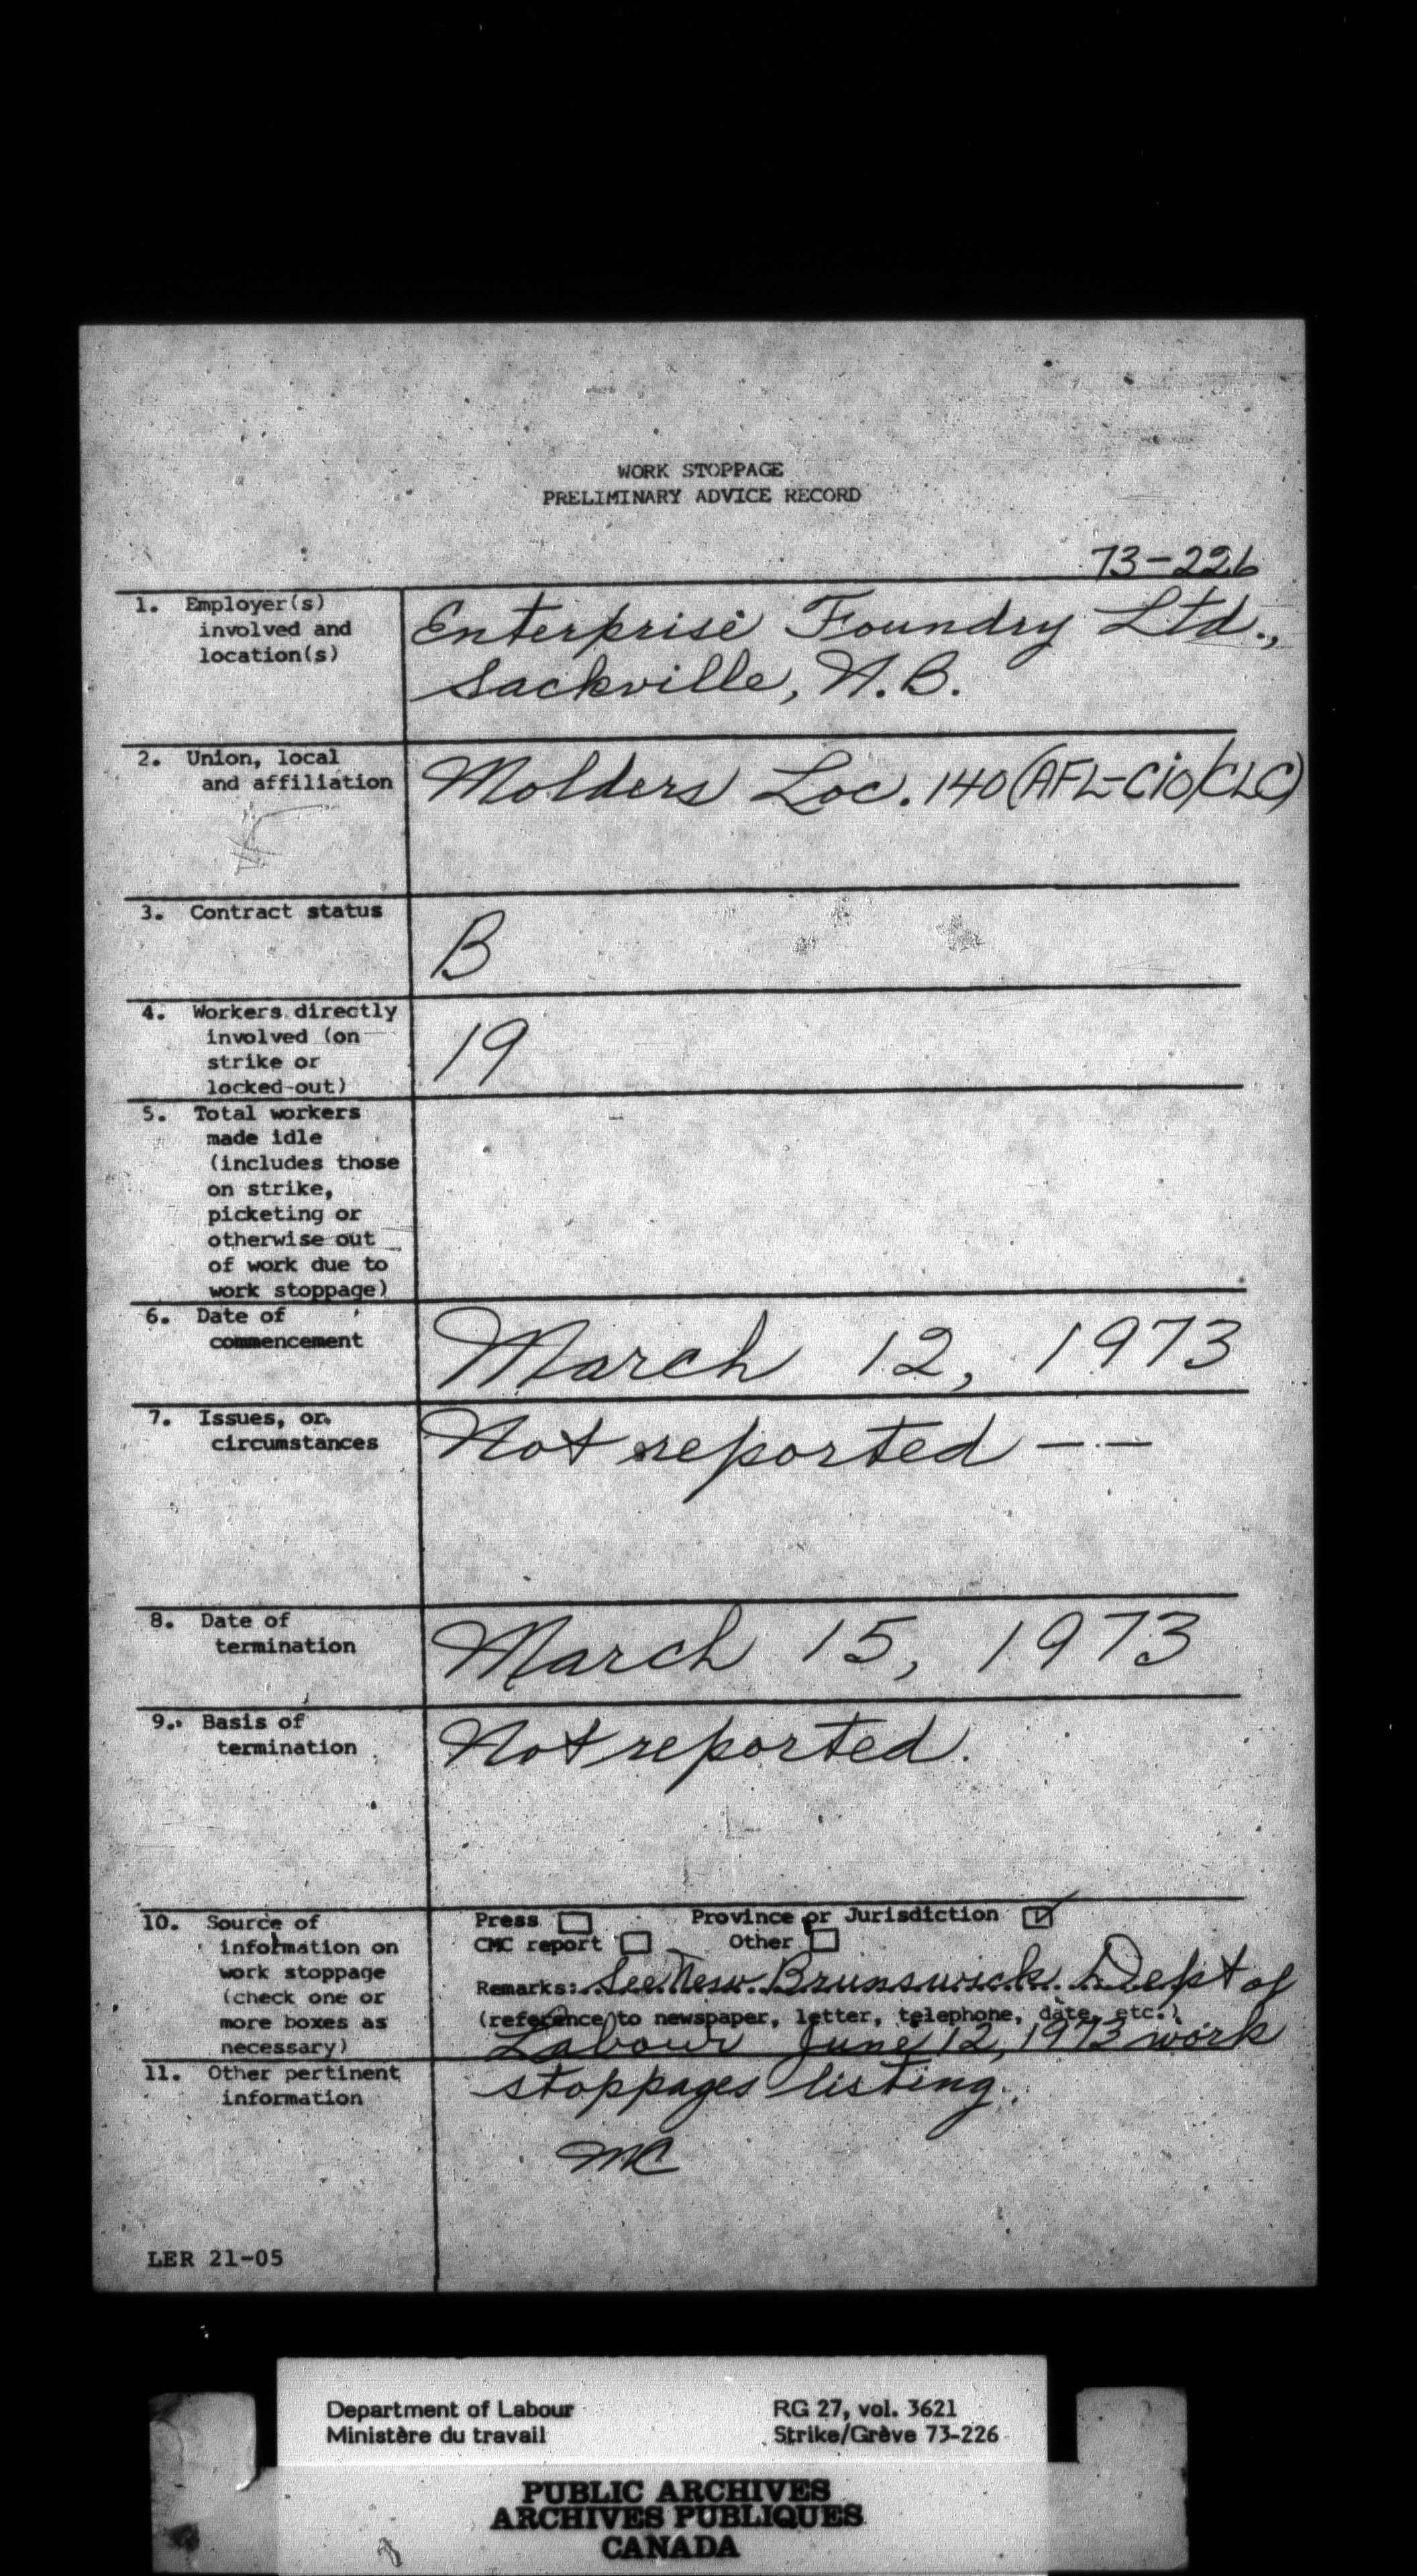 WORK STOPPAGE
PRELIMINARY ADVICE RECORD
73-226
1. Employer(s)
involved and
location(s)
Enterprise Foundry Ltd.,
Sackville, N.B.
2. Union, local
and affiliation
Molders Loc. 140 (AFL-CIO/CLC)
3. Contract status
B
4. Workers directly
involved (on
strike or
locked-out)
19
5. Total workers
made idle
(includes those
on strike,
picketing or
otherwise out
of work due to
work stoppage)
6. Date of
commencement
March 12, 1973
7. Issues, or
circumstances
Not reported - -
8. Date of
termination
March 15, 1973
9. Basis of
termination
Not reported.
10. Source of
information on
work stoppage
(check one or
more boxes as
necessary)
Press Province or Jurisdiction
CMC report Other
Remarks: See New Brunswick Dept of
(reference to newspaper, letter, telephone, date, etc.)
Labour June 12, 1973 work
11. Other pertinent
information
stoppages listing.
MC
LER 21-05
Department of Labour RG 27, vol. 3621
Ministère du travail Strike/Grève 73-226
PUBLIC ARCHIVES
ARCHIVES PUBLIQUES
CANADA